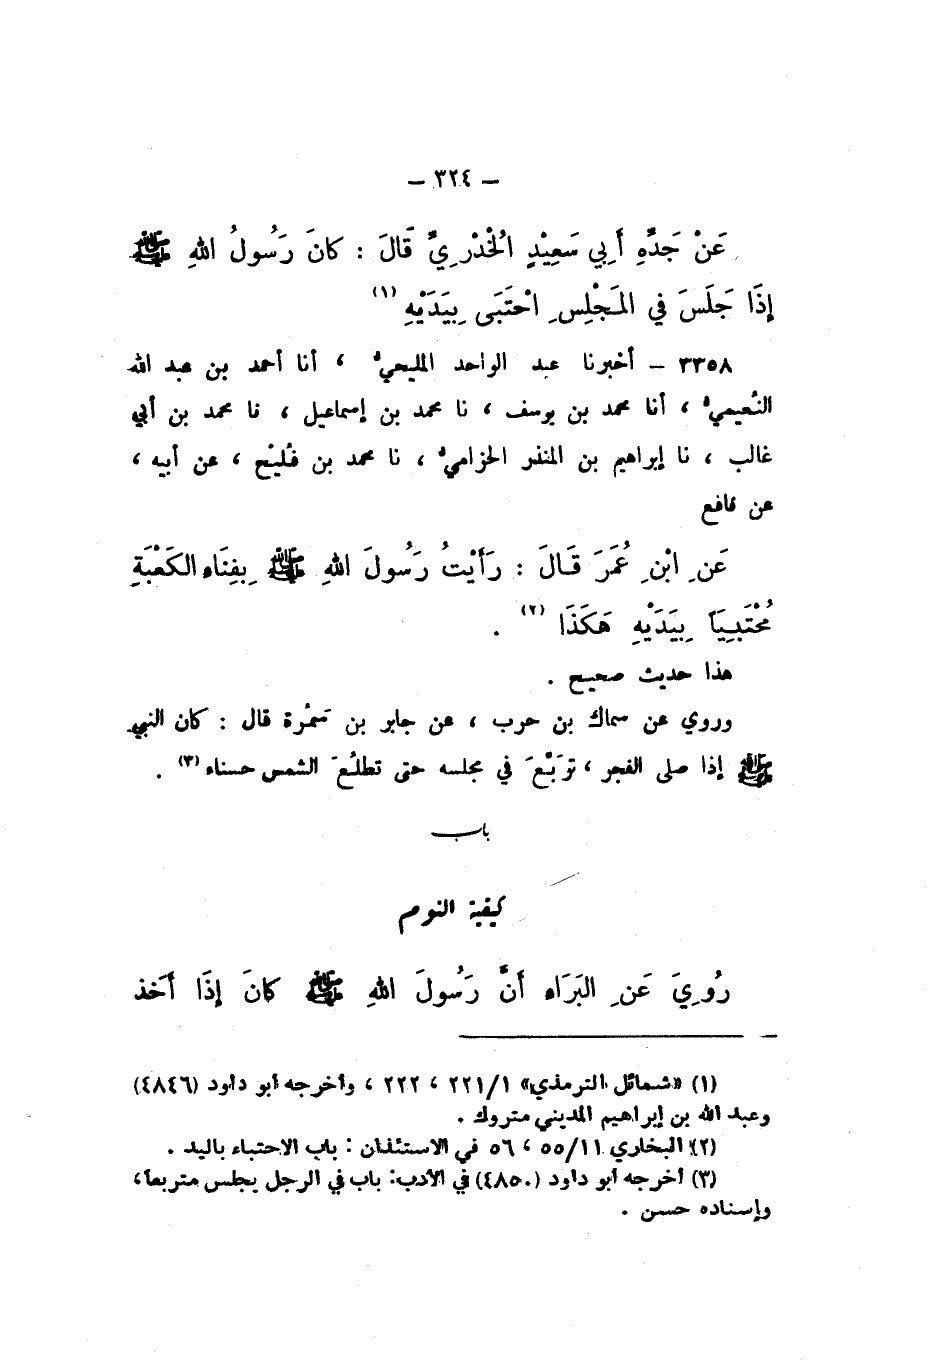 – ٣٢٤ –
عَنْ جَدِّهِ أَبِي سَعِيْدٍ الْخُدْرِيِّ قَالَ : كَانَ رَسُولُ اللهِ ﷺ
إِذَا جَلَسَ فِي المَجْلِسِ احْتَبَى بِيَدَيْهِ (١)
٣٣٥٨ – أخبرنا عبد الواحد المليحيُّ ، أنا أحمد بن عبد الله
النُّعيميُّ ، أنا محمد بن يوسف ، نا محمد بن إسماعيل ، نا محمد بن أبي
غالب ، نا إبراهيم بن المنذر الحزاميُّ ، نا محمد بن فُلَيْح ، عن أبيه ،
عن نافع
عَنِ ابْنِ عُمَرَ قَالَ : رَأَيْتُ رَسُولَ اللهِ ﷺ بِفِنَاءِ الكَعْبَةِ
مُحْتَبِيَاً بِيَدَيْهِ هَكَذَا (٢) .
هذا حديث صحيح .
وروي عن سماك بن حرب ، عن جابر بن سَمُرة قال : كان النبي
ﷺ إذا صلى الفجر ، تَرَبَّعَ في مجلسه حتى تطلُعَ الشمس حسناء (٣) .
باب
كيفية النوم
رُوِيَ عَنِ البَرَاءِ أَنَّ رَسُولَ اللهِ ﷺ كَانَ إِذَا أَخَذَ
(١) «شمائل الترمذي» ٢٢١/١ ، ٢٢٢ ، وأخرجه أبو داود (٤٨٤٦)
وعبد الله بن إبراهيم المديني متروك .
(٢) البخاري ٥٥/١١ ، ٥٦ في الاستئذان : باب الاحتباء باليد .
(٣) أخرجه أبو داود (٤٨٥٠) في الأدب: باب في الرجل يجلس متربعاً،
وإسناده حسن .